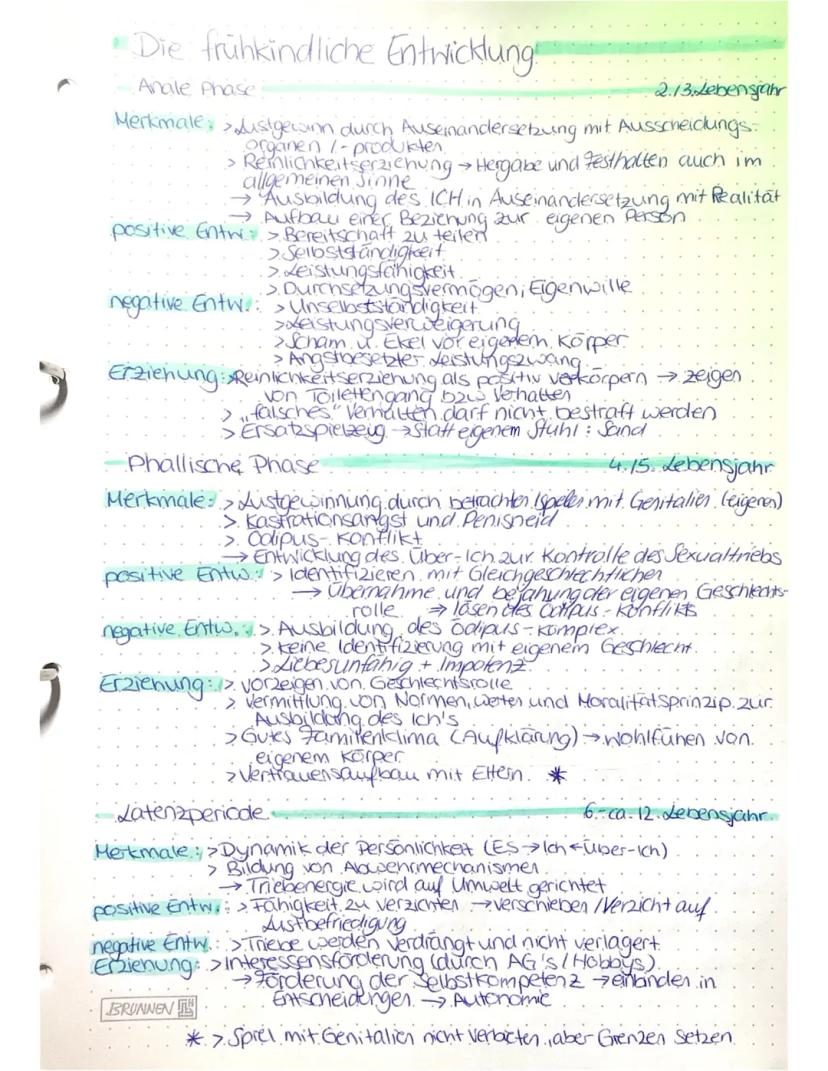 Die frühkindliche Entwicklung
Anale Phase 2./3. Lebensjahr
Merkmale: > Lustgewinn durch Auseinandersetzung mit Ausscheidungs-
organen /- produkten
> Reinlichkeitserziehung → Hergabe und Festhalten auch im
allgemeinen Sinne
→ Ausbildung des ICH in Auseinandersetzung mit Realität
→ Aufbau einer Beziehung zur eigenen Person
positive Entw.: > Bereitschaft zu teilen
> Selbstständigkeit
> Leistungsfähigkeit
> Durchsetzungsvermögen, Eigenwille
negative Entw.: > Unselbstständigkeit
> Leistungsverweigerung
> Scham u. Ekel vor eigenem Körper
> Angstbesetzter Leistungszwang
Erziehung: > Reinlichkeitserziehung als positiv verkörpern → zeigen
von Toilettengang bzw Verhalten
> „falsches" Verhalten darf nicht bestraft werden
> Ersatzspielzeug → statt eigenem Stuhl: Sand
Phallische Phase 4./5. Lebensjahr
Merkmale: > Lustgewinnung durch betrachten/spielen mit Genitalien (eigenen)
> Kastrationsangst und Penisneid
> Ödipus-Konflikt
→ Entwicklung des Über-Ich zur Kontrolle des Sexualtriebs
positive Entw.: > Identifizieren mit Gleichgeschlechtlichen
→ Übernahme und bejahung der eigenen Geschlechts-
rolle ⇒ lösen des Ödipus-Konflikts
negative Entw.: > Ausbildung des Ödipus-Komplex
> keine Identifizierung mit eigenem Geschlecht
> Liebesunfähig + Impotenz
Erziehung: > vorzeigen von Geschlechtsrolle
> Vermittlung von Normen, Werten und Moralitätsprinzip zur
Ausbildung des Ich's
> Gutes Familienklima (Aufklärung) → wohlfühlen von
eigenem Körper
> Vertrauensaufbau mit Eltern *
Latenzperiode 6.-ca. 12. Lebensjahr
Merkmale: > Dynamik der Persönlichkeit (ES → Ich ← Über-Ich)
> Bildung von Abwehrmechanismen
→ Triebenergie wird auf Umwelt gerichtet
positive Entw.: > Fähigkeit zu verzichten → verschieben / Verzicht auf
Lustbefriedigung
negative Entw.: > Triebe werden verdrängt und nicht verlagert
Erziehung: > Interessensförderung (durch AG's / Hobbys)
→ Förderung der Selbstkompetenz → einbinden in
Entscheidungen → Autonomie
BRUNNEN
* > Spiel mit Genitalien nicht verbieten, aber Grenzen setzen